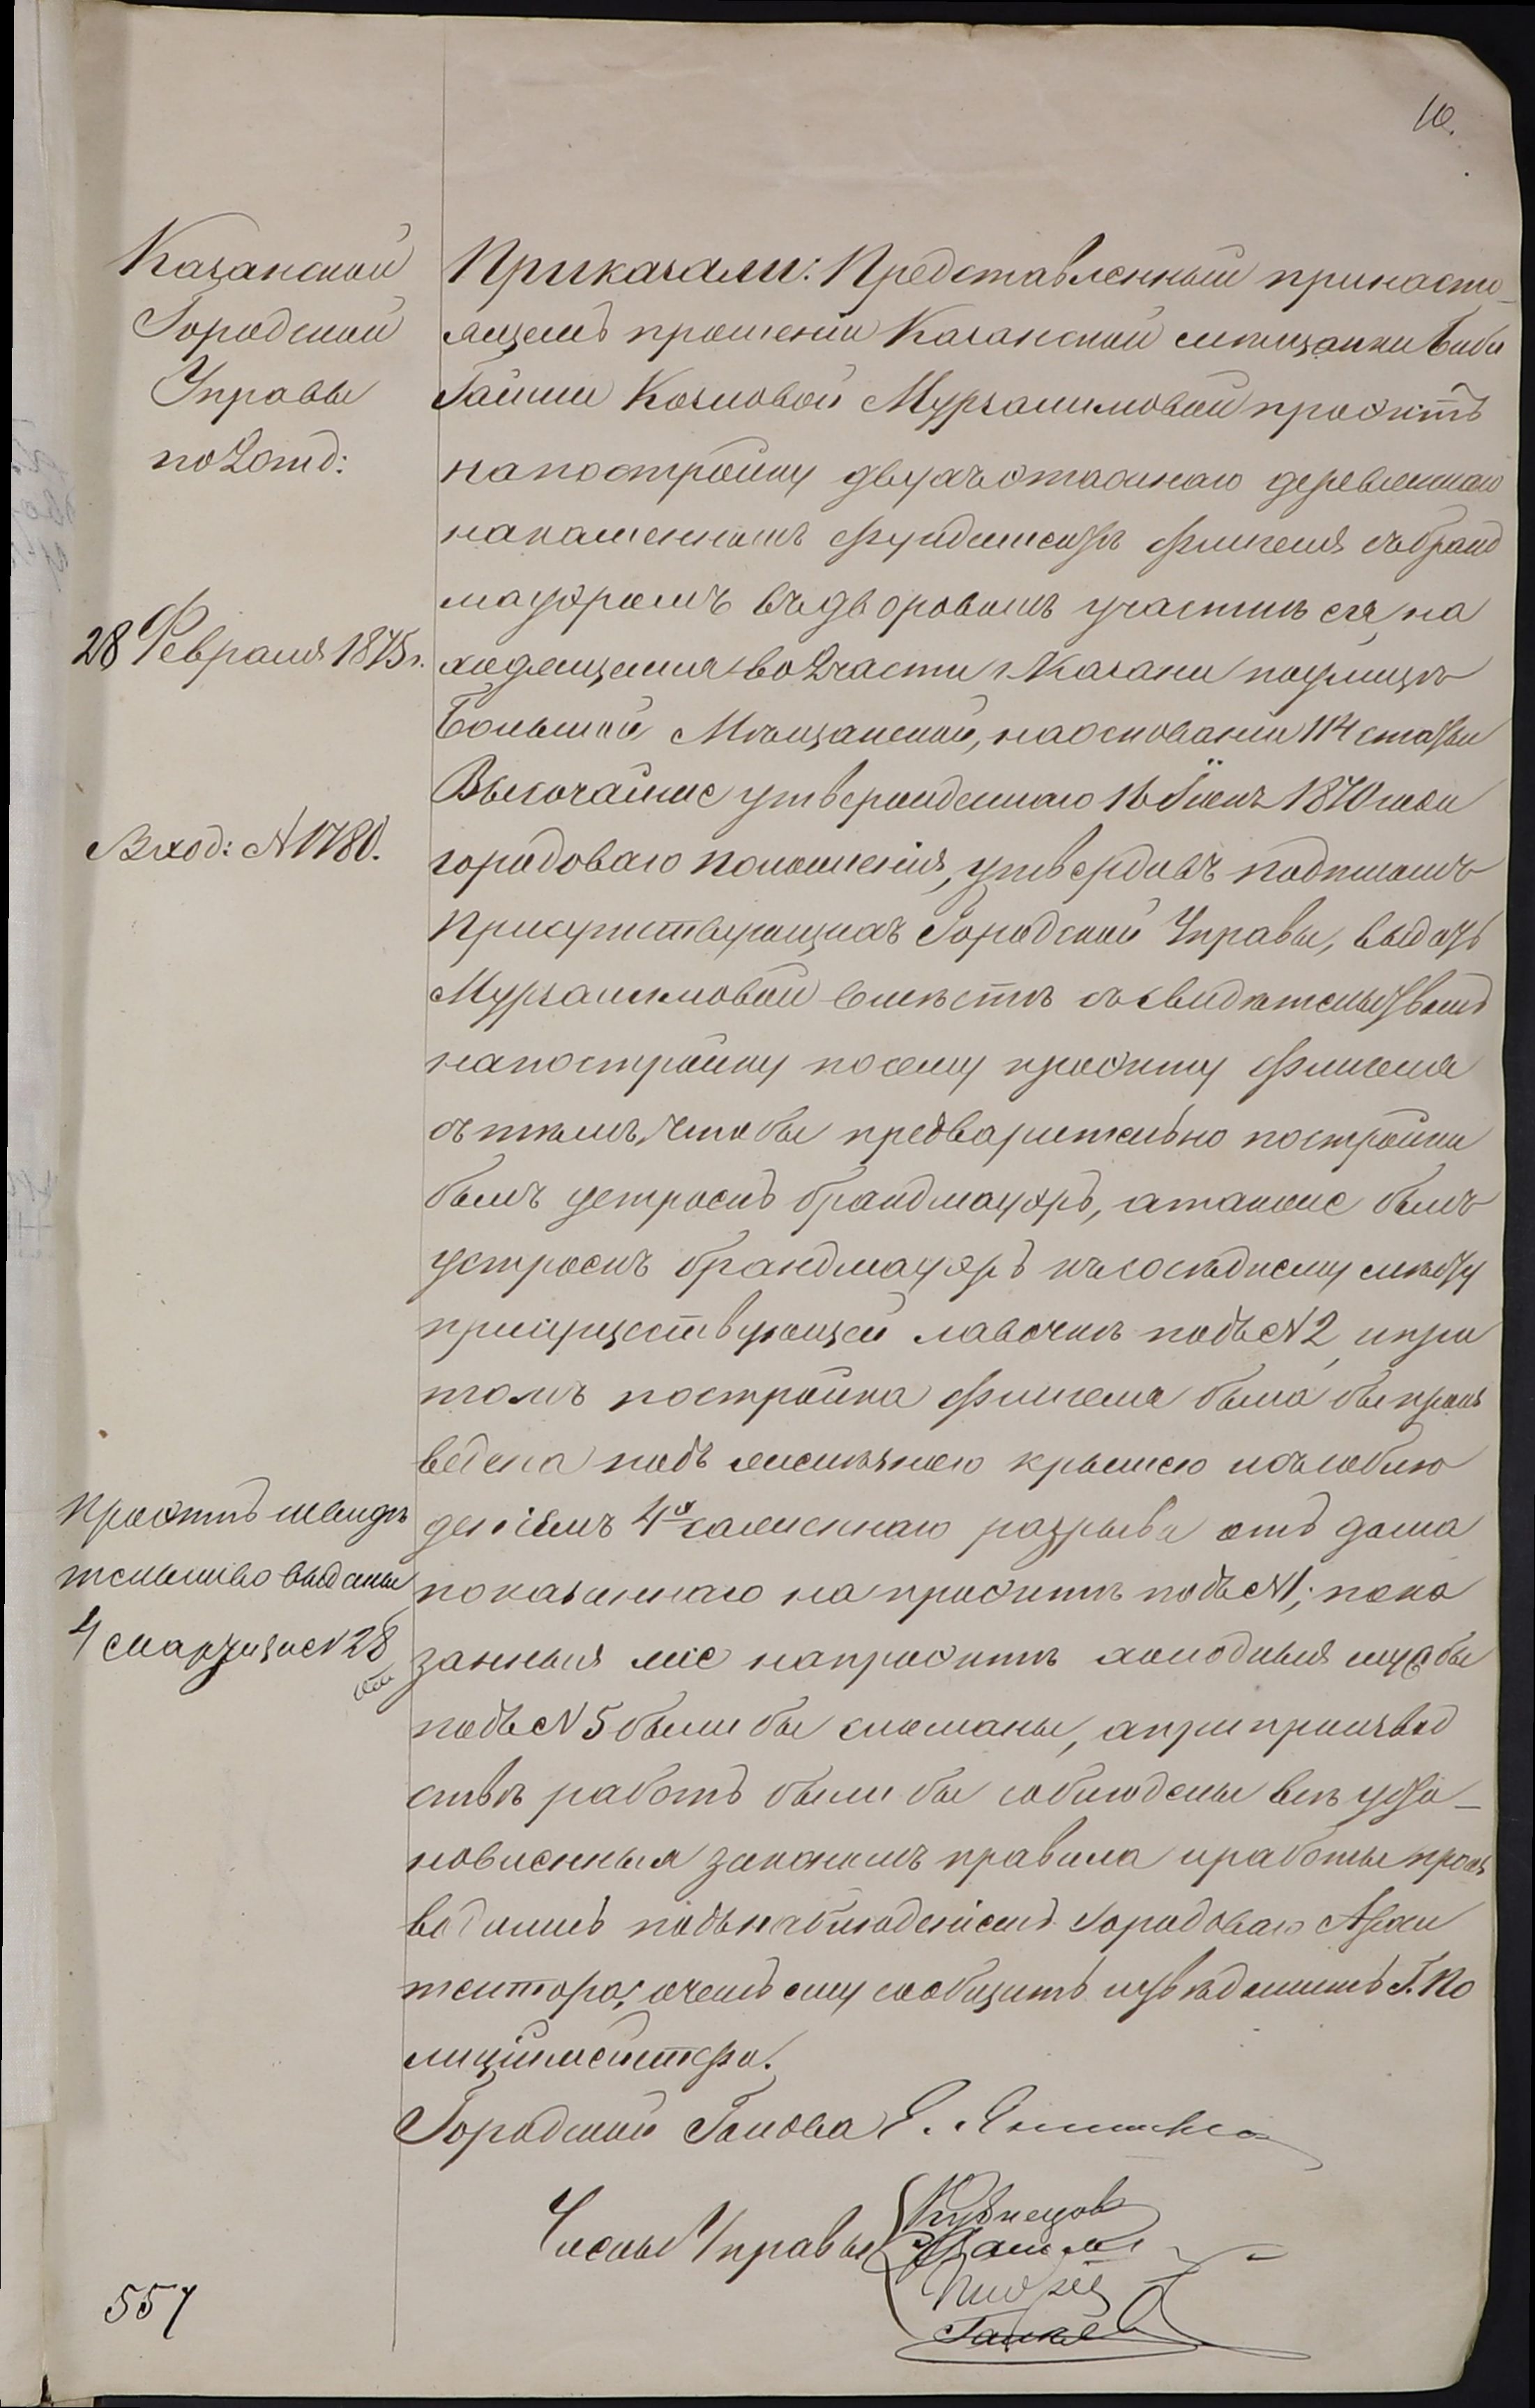 10.
Казанской
Городской
Управы
по 2 отд:
28 Февраля 1875 г.
Вход: N 1780.
Проэктъ и свидѣ
тельство выданы
4 Марта за N 28
557
Приказали: Представленный при насто-
ящемъ прошеніи Казанской мѣщанки Биби
Гайши Мурзалимовой проэктъ
на постройку двухъ этажнаго деревяннаго
на каменномъ фундаментѣ флигеля съ бранд
мауэромъ въ дворовомъ участкѣ ея, на
ходящемся во 2 части г. Казани по улицѣ
Большой Мѣщанской, на основаніи 114 статьи
Высочайше утвержденнаго 16 Іюня 1870 года
городоваго положенія, утвердивъ подписомъ
Присутствующихъ Городской Управы, выдать
Мурзалимовой вмѣстѣ съ свидѣтельствомъ
на постройку по сему проэкту флигеля
съ тѣмъ, чтобы предварительно постройки
былъ устроенъ брандмауэръ, а также былъ
устроенъ брандмауэръ къ сосѣднему мѣсту
при существующей лавочкѣ подъ N 2, и при
томъ постройка флигеля была бы произ
ведена подъ желѣзною крышею и съ соблю
деніемъ 4х саженнаго разрыва отъ дома
показаннаго на проэктѣ подъ N 1; пока
занныя же на проэктѣ холодныя службы
подъ N 5 были бы сломаны, а при производ
ствѣ работъ были бы соблюдены всѣ уста-
новленныя закономъ правила и работы произ
водились подъ наблюденіемъ Городоваго Архи
тектора, о чемъ ему сообщить и увѣдомить Г. По
лиціймейстера.
Городской Голова Е. Янишевскій
Члены Управы
Кузнецовъ